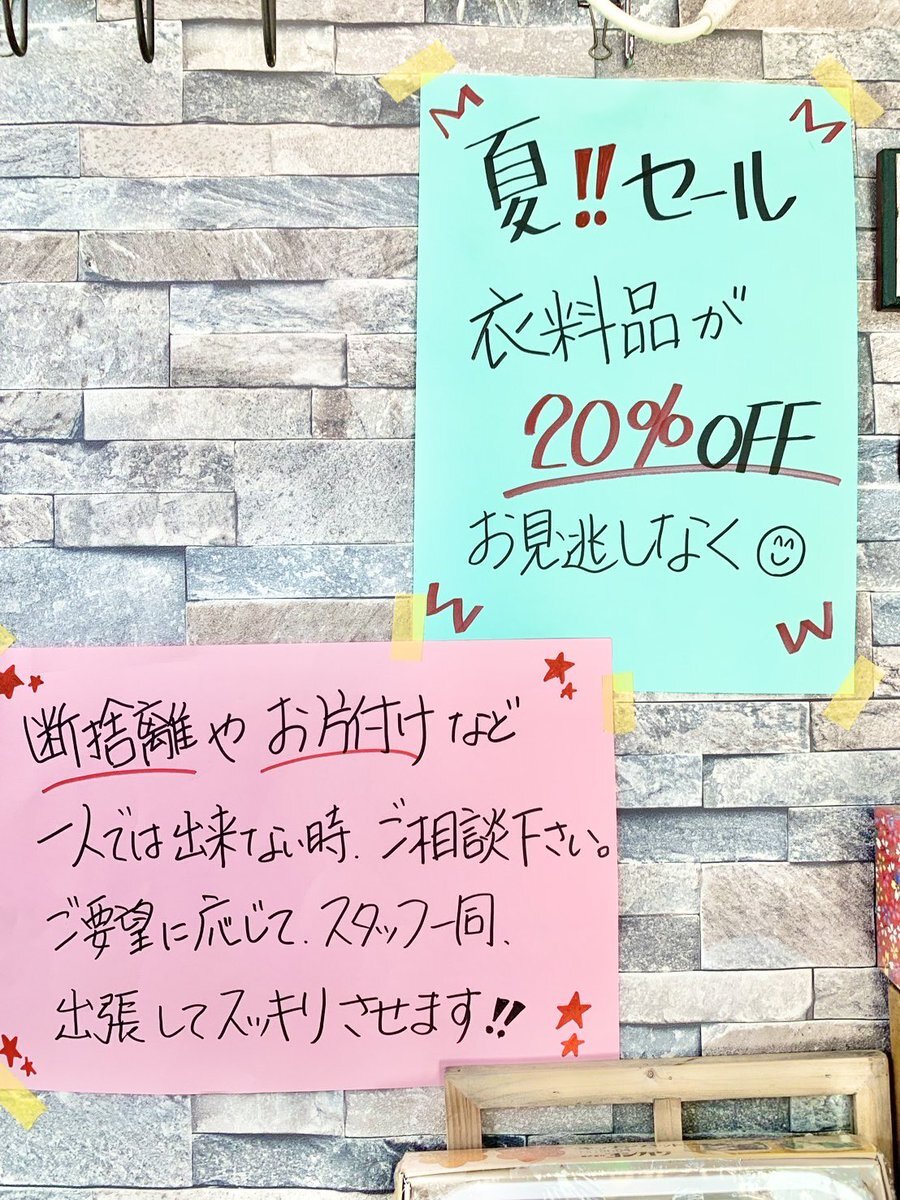 夏!!セール
衣料品が
20%OFF
お見逃しなく
断捨離やお片付けなど
一人では出来ない時、ご相談下さい。
ご要望に応じて、スタッフ一同、
出張してスッキリさせます!!